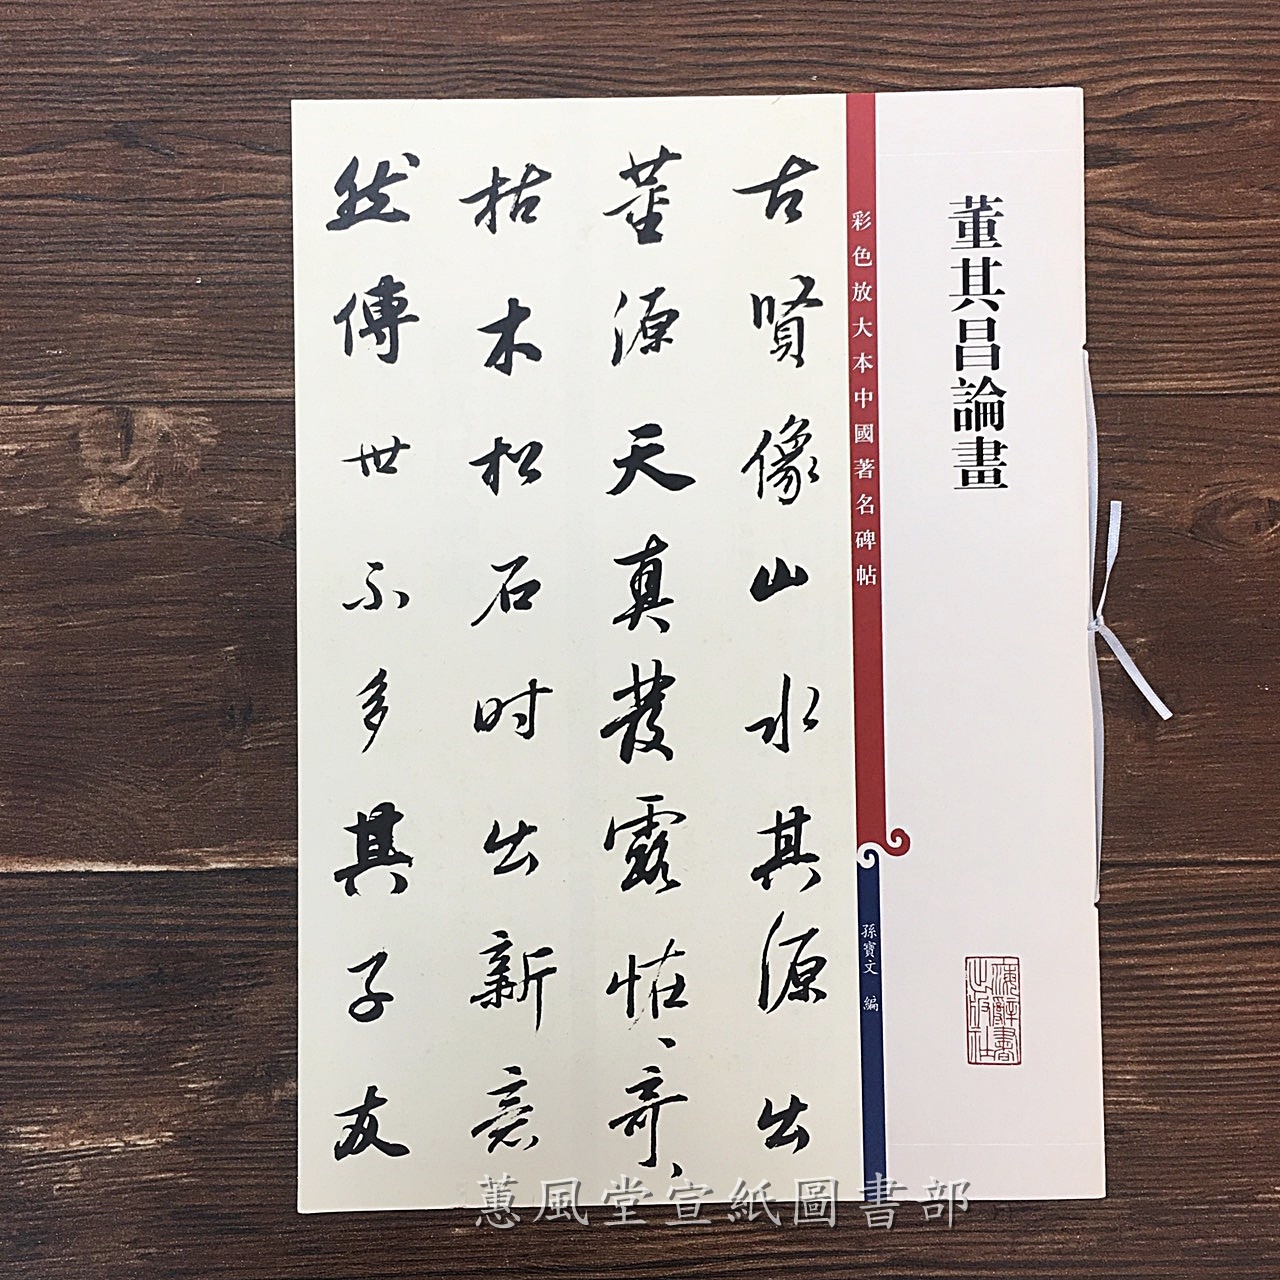 董其昌論畫
海辭書出版社
彩色放大本中國著名碑帖
孫寶文 編
古賢像山水其源出
董源天真發露怪、奇、
枯木松石时出新意
然傳世不多其子友
蕙風堂宣紙圖書部